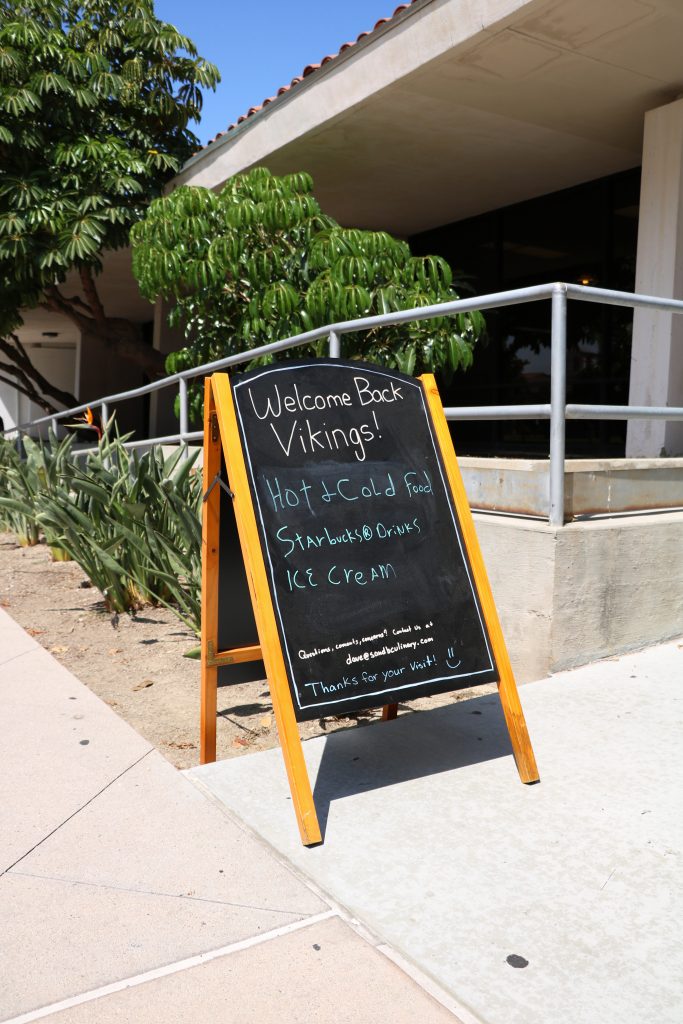 Welcome Back
Vikings!
Hot & Cold Food
Starbucks® Drinks
Ice Cream
Questions, coments, concerns? Contact us at
dave@sandbculinary.com
Thanks for your visit! :)